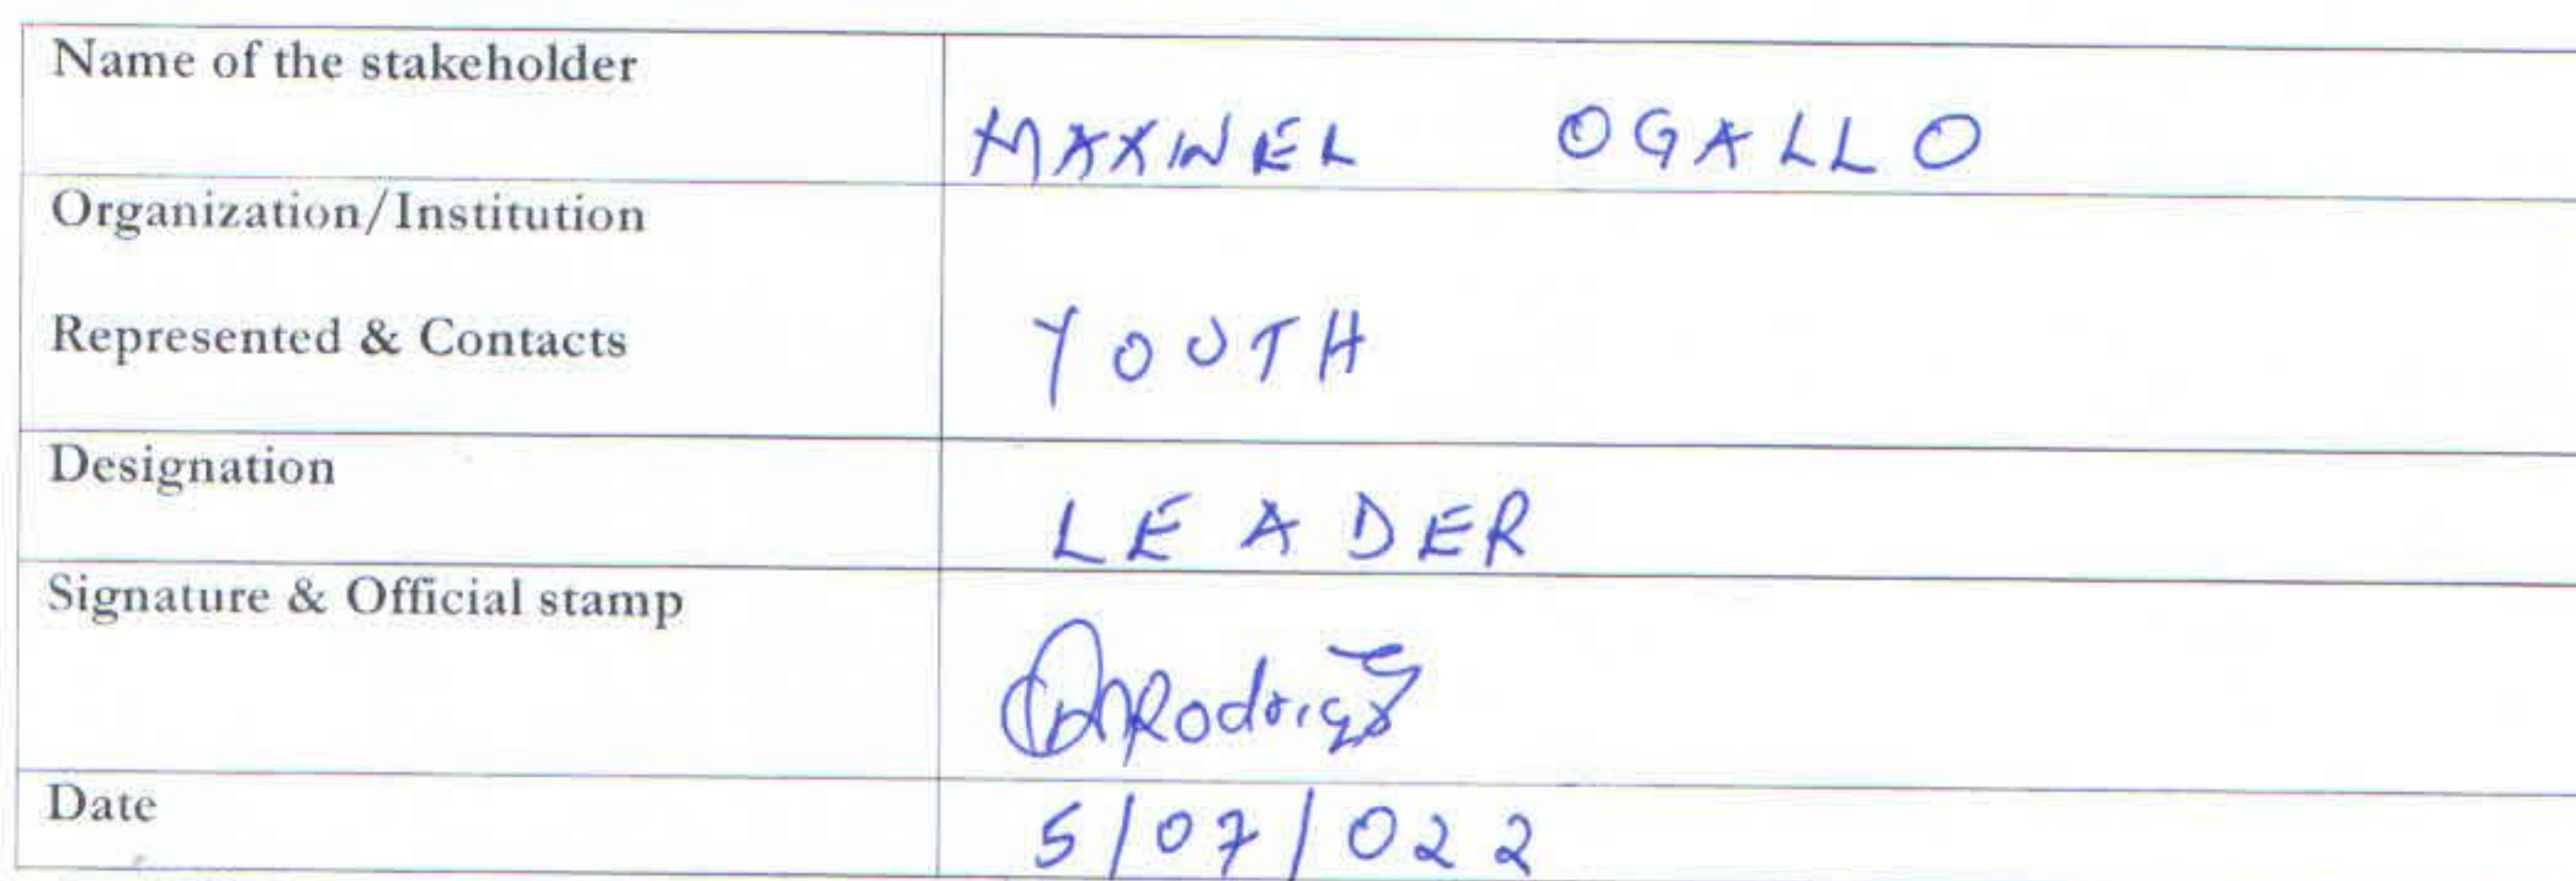 Name of the stakeholder
MAXWEL OGALLO
Organization/Institution
Represented & Contacts
YOUTH
Designation
LEADER
Signature & Official stamp
Date
5/07/022